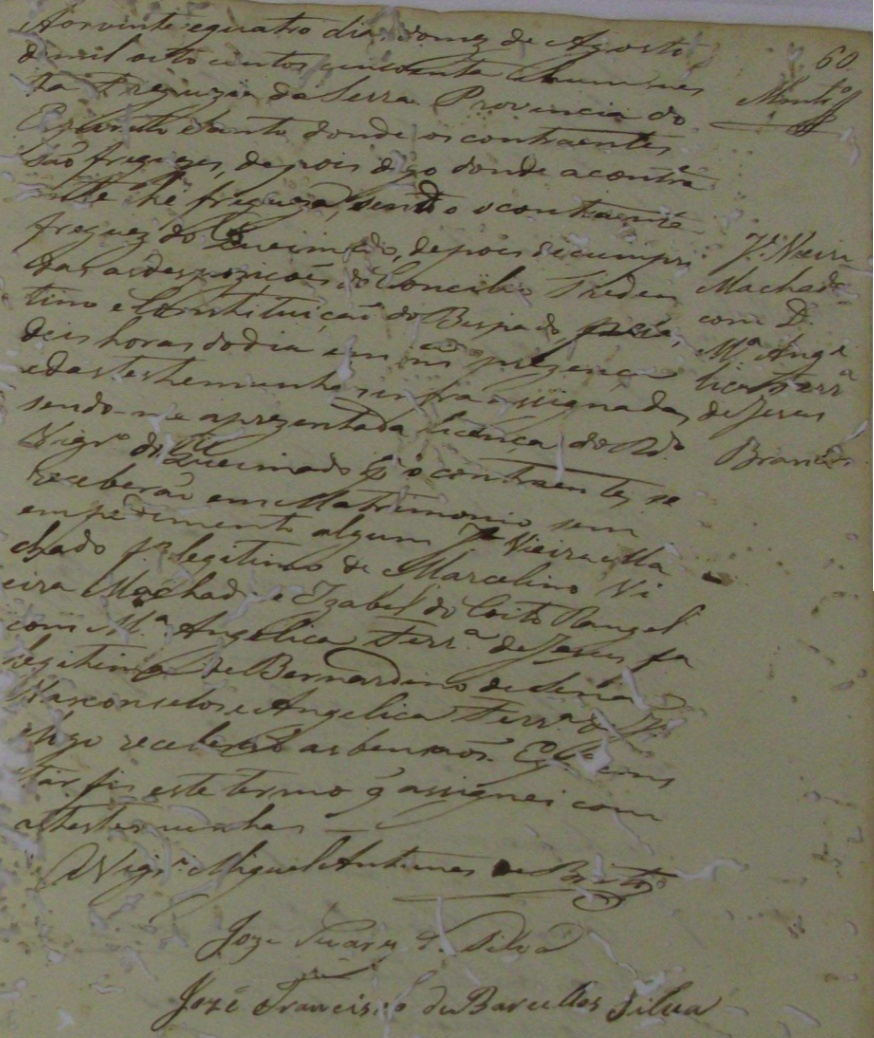 Aos vinte e quatro dias do mez de Agosto
de mil oito centos cincoenta e hum nes
ta Freguezia da Serra Provincia do
Espirito Santo donde os contraentes
são freguezes, depois digo donde a contra
ente he fregueza, sendo o contraente
freguez do Queimado, depois de cumpri
das as despozições do Concilio Triden
tino e Constituiçaõ do Bispado
horas do dia em m prezença
e das testhemunhas infra assignadas
sendo-me aprezentada licença do Rdo
Vigrº do Queimado q os contraentes se
receberão em Matrimonio sem
empedimento algum Je Vieira Ma
chado fº legitimo de Marcelino Vi
eira Machado e Izabel do Couto Rangel
com Mª Angelica Ferrª de Jesus fa
legitima de Bernardino de Senna
Vasconselos e Angelica Ferrª de Js
e logo receberão as bençõns. E pª cons
tar fis este termo q assignei com
as testhemunhas
O Vigrº Miguel Antunes de Brito
Joze Suares da Silva
José Francisco de Barcellos Silva
60
Je Vieira
Machado
com D.
Mª Ange
lica Ferrª
de Jesus
Brancos